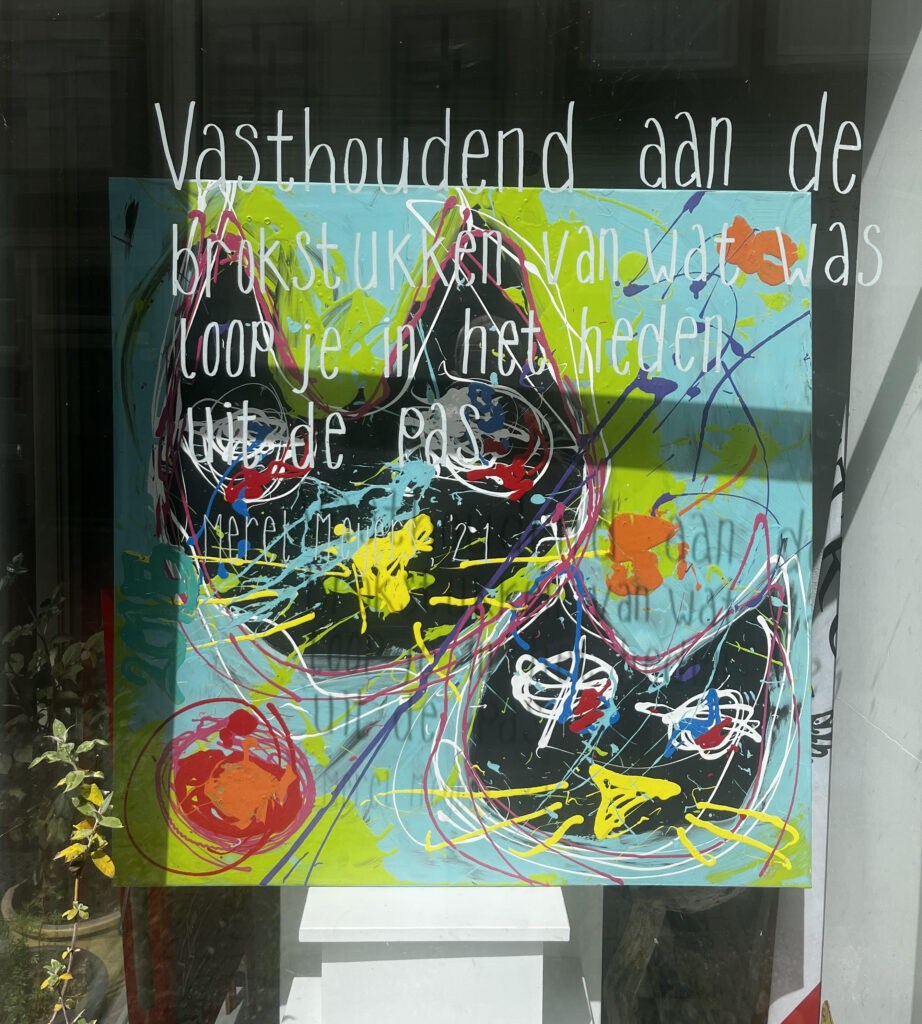 Vasthoudend aan de
brokstukken van wat was
loop je in het heden
uit de pas
Merel Meijer, '21